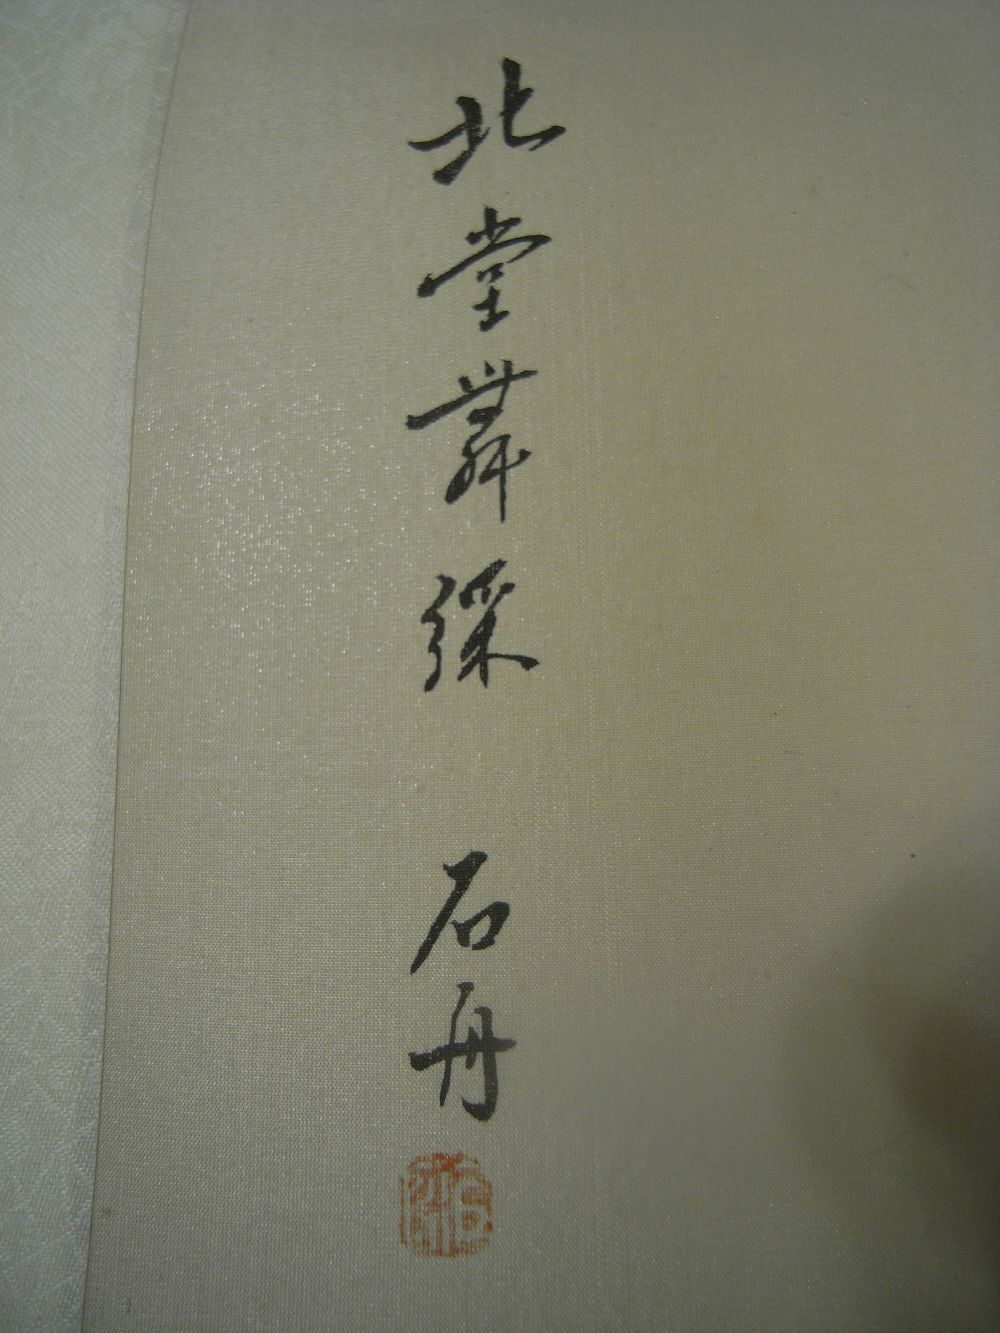 北堂舞綵 石舟